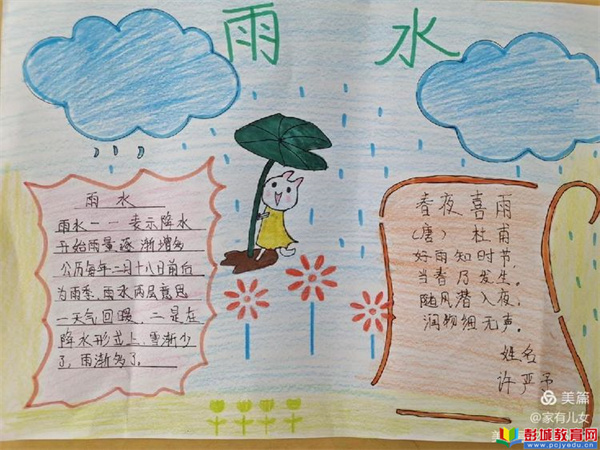 雨 水
雨水
雨水一一表示降水
开始雨量逐渐增多
公历每年二月十八日前后
为雨季.雨水两层意思
一天气回暖,二是在
降水形式上,雪渐少
了,雨渐多了,
春夜喜雨
(唐) 杜甫
好雨知时节
当春乃发生,
随风潜入夜,
润物细无声.
姓名
许严予
美篇
@家有儿女
彭城教育网
www.pcjyedu.cn